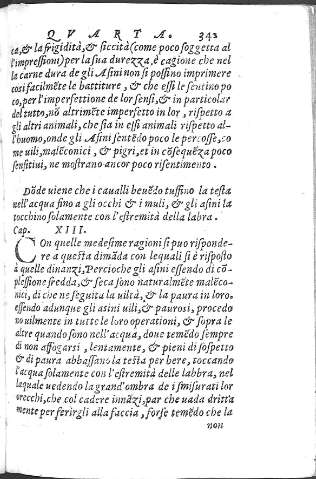 QVARTA. 343
ca, & la frigidità, & siccità (come poco soggetta al
l'impressioni) per la sua durezza, è cagione che nel
la carne dura de gli Asini non si possino imprimere
cosi facilmẽte le battiture, & che essi le sentino po
co, per l'imperfettione de lor sensi, & in particolar
del tutto, nõ altrimẽte imperfetto in lor, rispetto a
gli altri animali, che sia in essi animali rispetto al-
l'huomo, onde gli Asini sentẽdo poco le percosse, co
me uili, malẽconici, & pigri, et in cõseguẽza poco
sensitiui, ne mostrano ancor poco risentimento.
Dõde viene che i caualli beuẽdo tuffino la testa
nell'acqua sino a gli occhi & i muli, & gli asini la
tocchino solamente con l'estremità della labra.
Cap. XIII.
COn quelle medesime ragioni si puo risponde-
re a questa dimãda con lequali si è risposto
à quelle dinanzi, Percioche gli asini essendo di cõ-
plessione fredda, & seca sono naturalmẽte malẽco-
nici, di che ne seguita la uiltà, & la paura in loro.
essendo adunque gli asini uili, & paurosi, procedo
no uilmente in tutte le loro operationi, & sopra le
altre quando sono nell'acqua, doue temẽdo sempre
di non affogarsi, lentamente, & pieni di sospetto
& di paura abbassano la testa per bere, toccando
l'acqua solamente con l'estremità delle labbra, nel
laquale uedendo la grand'ombra de i smisurati lor
orecchi, che col cadere innãzi, par che uada dritta
mente per ferirgli alla faccia, forse temẽdo che la
non